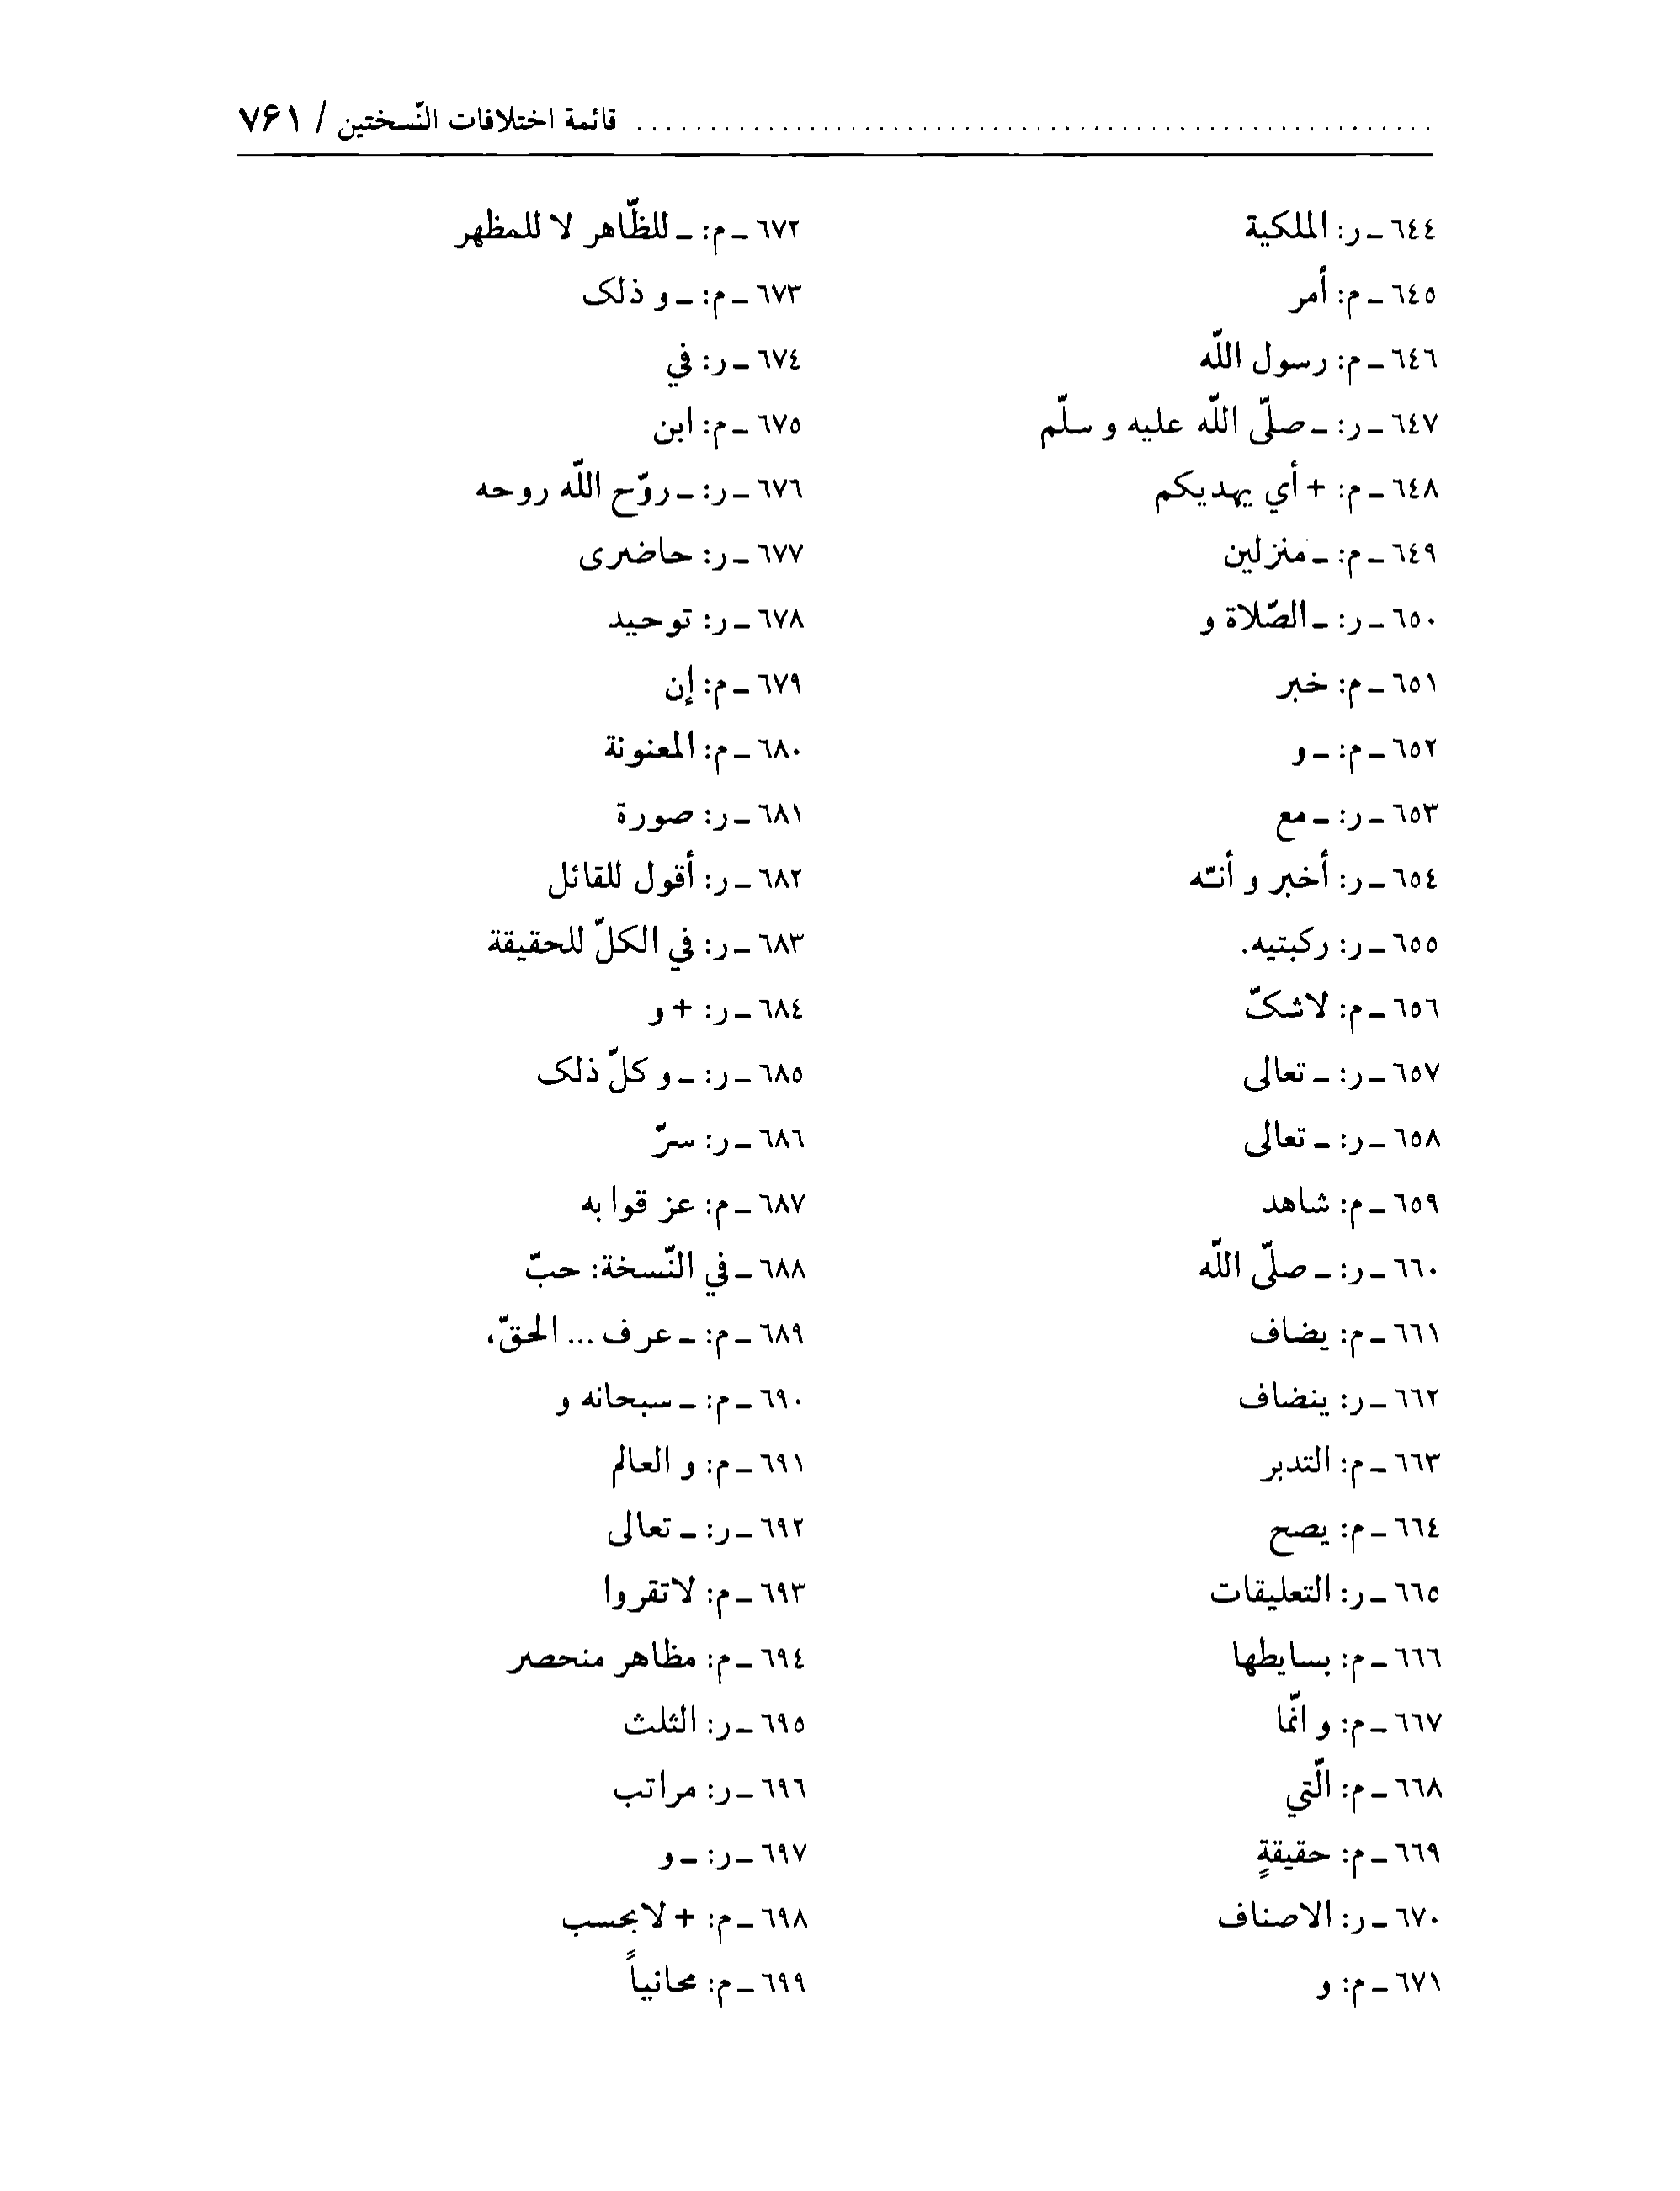 قائمة اختلافات النّسختين / ۷۶۱
٦٤٤ ـ ر: الملكية
٦٤٥ ـ م: أمر
٦٤٦ ـ م: رسول اللّه
٦٤٧ ـ ر: ـ صلّى اللّه عليه و سلّم
٦٤٨ ـ م: + أي يهديكم
٦٤٩ ـ م: ـ منزلين
٦٥٠ ـ ر: ـ الصّلاة و
٦٥١ ـ م: خبر
٦٥٢ ـ م: ـ و
٦٥٣ ـ ر: ـ مع
٦٥٤ ـ ر: أخبر و أنّه
٦٥٥ ـ ر: ركبتيه.
٦٥٦ ـ م: لاشکّ
٦٥٧ ـ ر: ـ تعالى
٦٥٨ ـ ر: ـ تعالى
٦٥٩ ـ م: شاهد
٦٦٠ ـ ر: ـ صلّى اللّه
٦٦١ ـ م: يضاف
٦٦٢ ـ ر: ينضاف
٦٦٣ ـ م: التدبر
٦٦٤ ـ م: يصح
٦٦٥ ـ ر: التعليقات
٦٦٦ ـ م: بسايطها
٦٦٧ ـ م: و انّما
٦٦٨ ـ م: الّتي
٦٦٩ ـ م: حقيقةٍ
٦٧٠ ـ ر: الاصناف
٦٧١ ـ م: و
٦٧٢ ـ م: ـ للظّاهر لا للمظهر
٦٧٣ ـ م: ـ و ذلک
٦٧٤ ـ ر: في
٦٧٥ ـ م: ابن
٦٧٦ ـ ر: ـ روّح اللّه روحه
٦٧٧ ـ ر: حاضرى
٦٧٨ ـ ر: توحيد
٦٧٩ ـ م: إن
٦٨٠ ـ م: المعنونة
٦٨١ ـ ر: صورة
٦٨٢ ـ ر: أقول للقائل
٦٨٣ ـ ر: في الكلّ للحقيقة
٦٨٤ ـ ر: + و
٦٨٥ ـ ر: ـ و كلّ ذلک
٦٨٦ ـ ر: سرّ
٦٨٧ ـ م: عز قوا به
٦٨٨ ـ في النّسخة: حبّ
٦٨٩ ـ م: ـ عرف ... الحقّ،
٦٩٠ ـ م: ـ سبحانه و
٦٩١ ـ م: و العالم
٦٩٢ ـ ر: ـ تعالى
٦٩٣ ـ م: لاتقروا
٦٩٤ ـ م: مظاهر منحصر
٦٩٥ ـ ر: الثلث
٦٩٦ ـ ر: مراتب
٦٩٧ ـ ر: ـ و
٦٩٨ ـ م: + لابحسب
٦٩٩ ـ م: محانياً